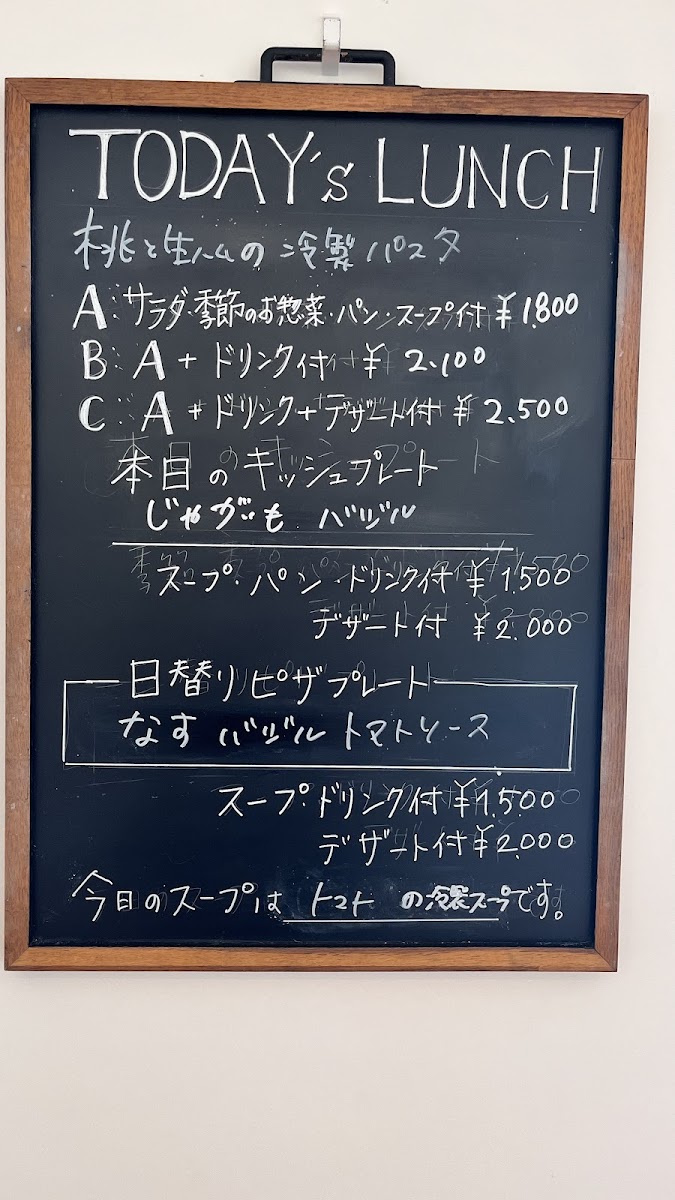 TODAY's LUNCH
桃と生ハムの冷製パスタ
A:サラダ・季節のお惣菜・パン・スープ付 ¥1.800
B: A + ドリンク付 ¥ 2.100
C: A + ドリンク+デザート付 ¥ 2.500
本日のキッシュプレート
じゃがいも バジル
スープ・パン・ドリンク付 ¥ 1.500
デザート付 ¥2.000
日替りピザプレート
なす バジル トマトソース
スープ・ドリンク付¥1.500
デザート付¥2.000
今日のスープは トマト の冷製スープです。